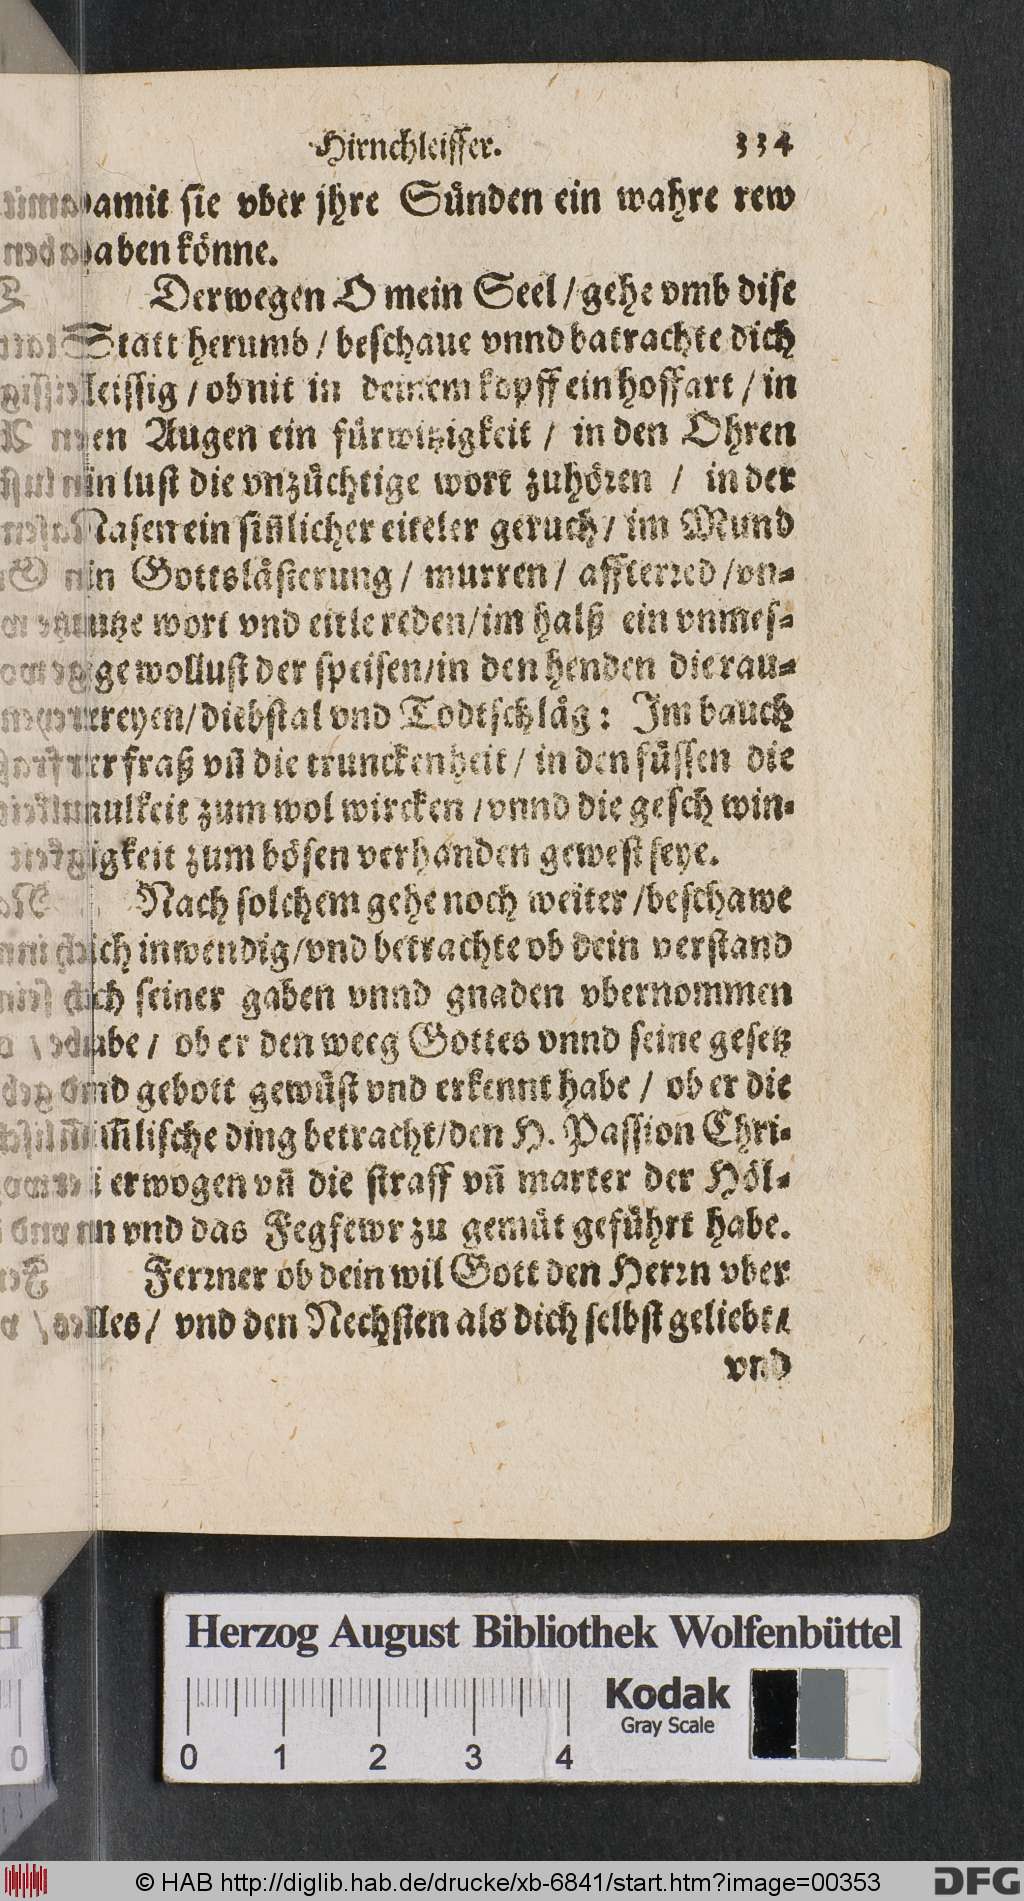 Hirnchleiffer. 334
damit sie vber jhre Sünden ein wahre rew
haben könne.
Derwegen O mein Seel / gehe vmb dise
Statt herumb / beschaue vnnd batrachte dich
fleissig / ob nit in deinem kopff ein hoffart / in
den Augen ein fürwitzigkeit / in den Ohren
ein lust die vnzüchtige wort zuhören / in der
Nasen ein siñlicher eiteler geruch / im Mund
ein Gottslästerung / murren / affterred / vn-
nutze wort vnd eittle reden / im halß ein vnmes-
sige wollust der speisen / in den henden die rau-
bereyen / diebstal vnd Todtschläg: Im bauch
der fraß vñ die trunckenheit / in den füssen die
faulkeit zum wol wircken / vnnd die geschwin-
digkeit zum bösen verhanden gewest seye.
Nach solchem gehe noch weiter / beschawe
dich inwendig / vnd betrachte ob dein verstand
sich seiner gaben vnnd gnaden vbernommen
habe / ob er den weeg Gottes vnnd seine gesetz
vnd gebott gewüst vnd erkennt habe / ob er die
him̃lische ding betracht / den H. Passion Chri-
sti erwogen vñ die straff vñ marter der Höl-
len vnd das Fegfewr zu gemüt geführt habe.
Ferrner ob dein wil Gott den Herrn vber
alles / vnd den Nechsten als dich selbst geliebt /
vnd
Herzog August Bibliothek Wolfenbüttel
Kodak
Gray Scale
0 1 2 3 4
© HAB http://diglib.hab.de/drucke/xb-6841/start.htm?image=00353
DFG